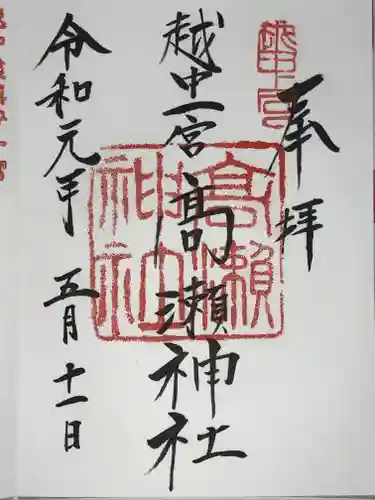 奉拝
越中一宮高瀬神社
令和元年 五月十一日
高瀬神社